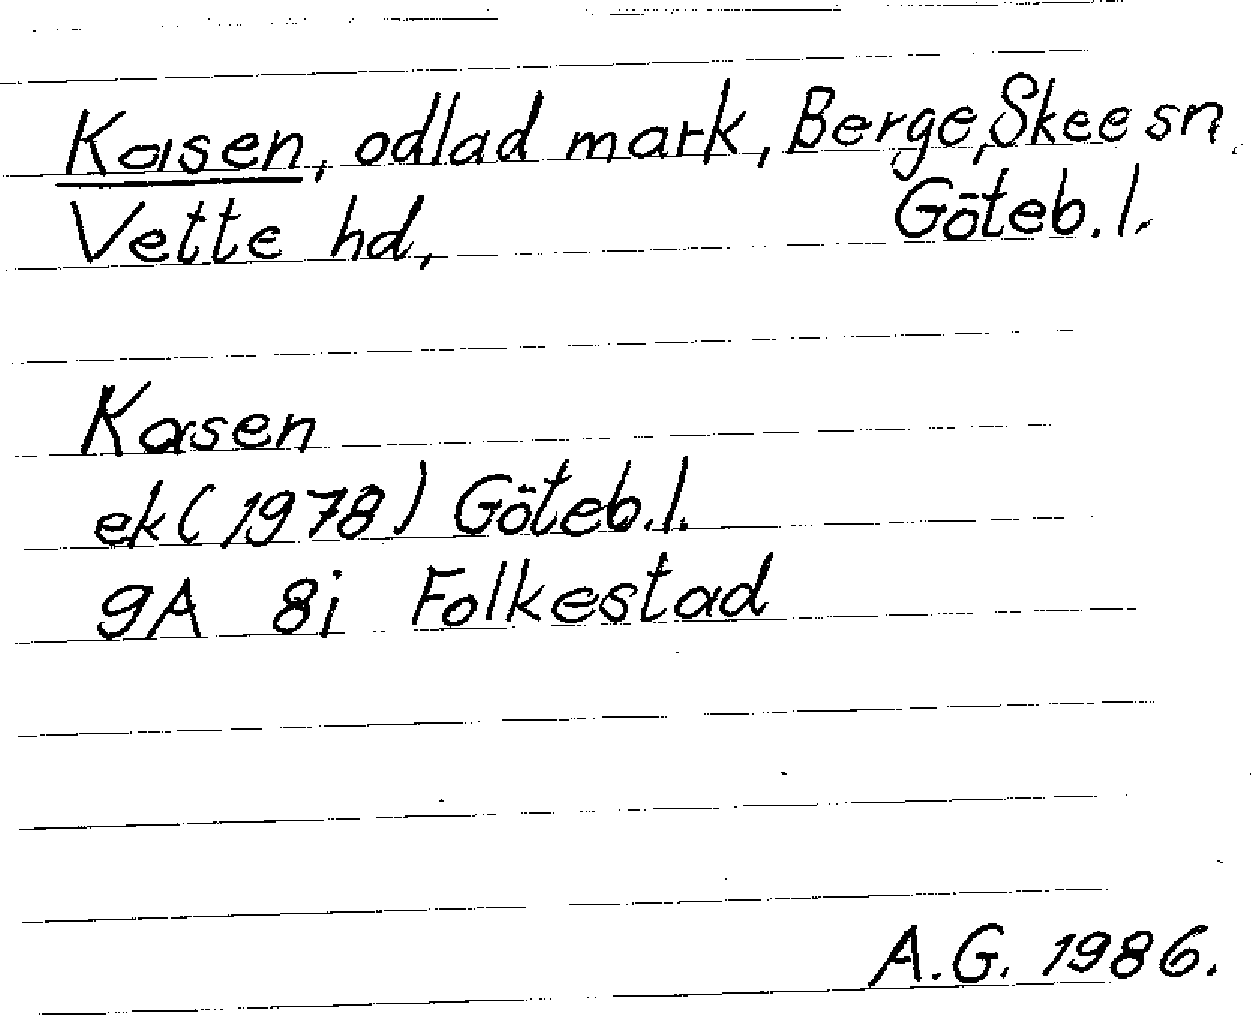 Kasen, odlad mark, Berge, Skee sn.
Vette hd, Göteb. l.
Kasen
ek (1978) Göteb. l.
9A 8i Folkestad
A.G. 1986.